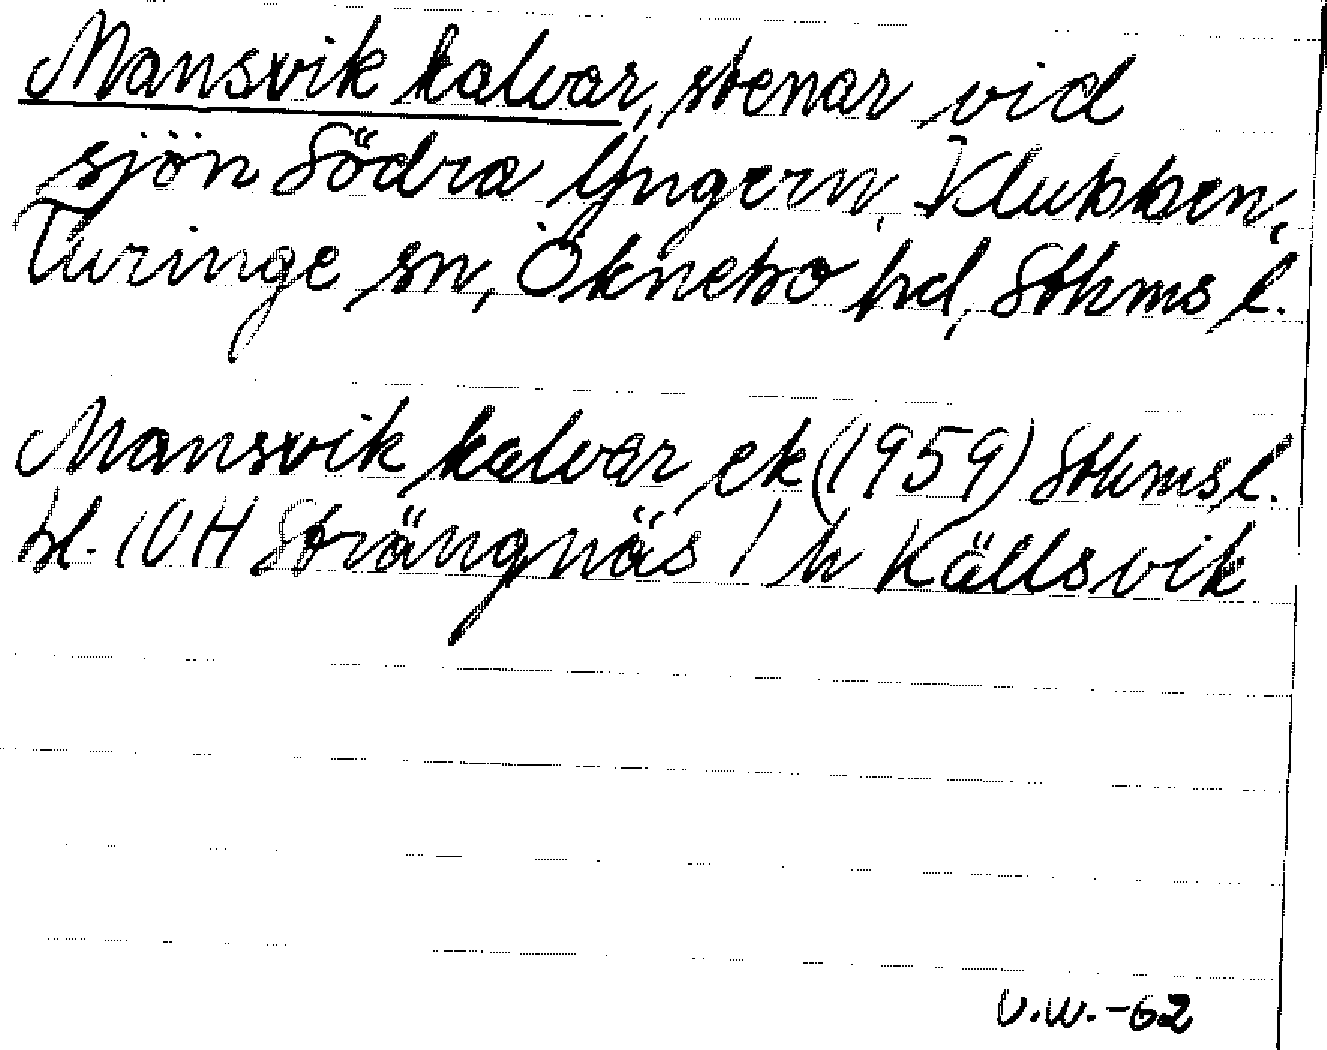 Mansvik kalvar, stenar vid
sjön Södra Yngern, Klubben,
Turinge sn, Öknebo hd, Sthms l.
Mansvik kalvar ek (1959) Sthms l.
bl. 10H Strängnäs 1 h Källsvik
V.W.-62